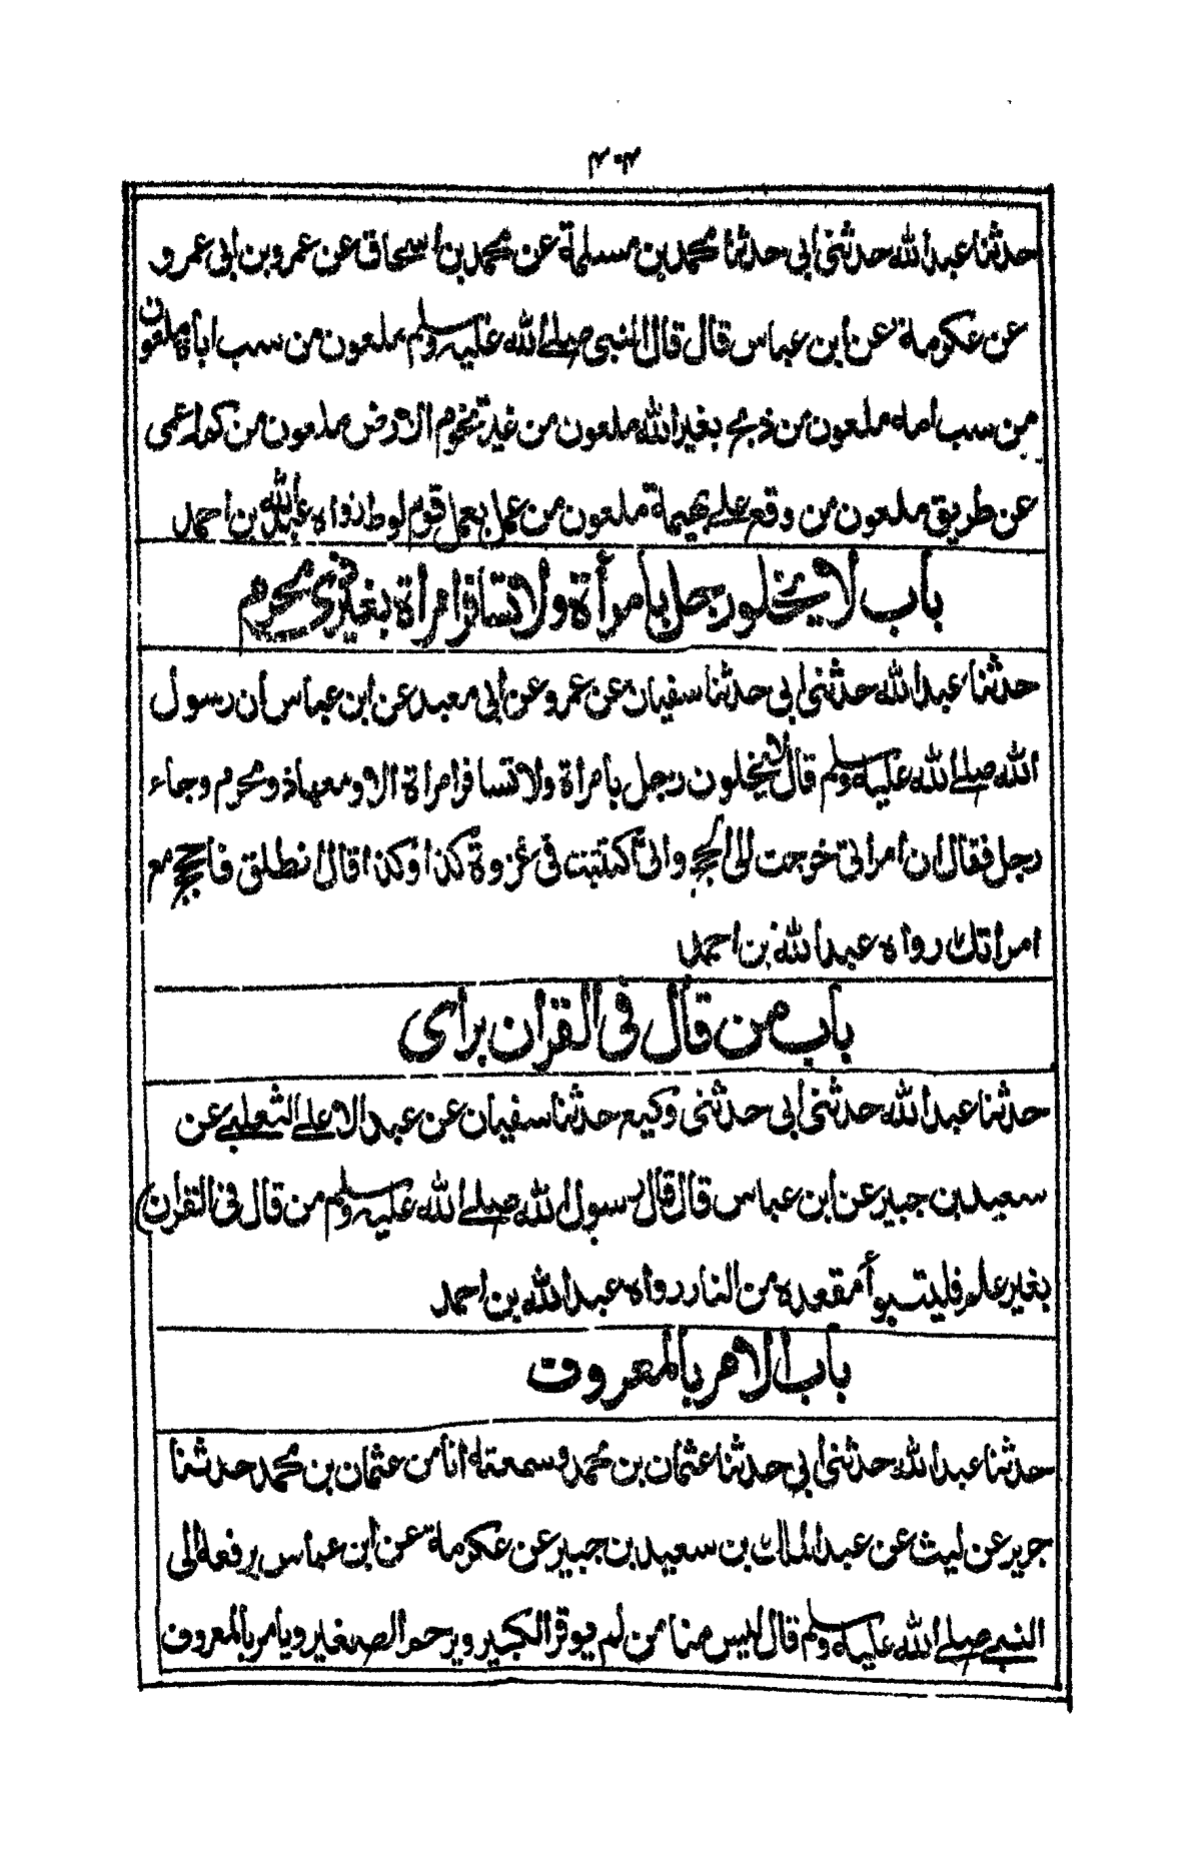 ٢٠٢
حدثنا عبد الله حدثنى أبى حدثنا محمد بن مسلمة عن محمد بن اسحاق عن عمرو بن ابى عمرو
عن عكرمة عن ابن عباس قال قال النبى صلى الله عليه وسلم ملعون من سب اباه ملعون
من سب امه ملعون من ذبح بغير الله ملعون من غير تخوم الارض ملعون من كمه اعمى
عن طريق ملعون من وقع على بهيمة ملعون من عمل بعمل قوم لوط رواه عبد الله بن احمد
باب لا يخلو رجل بأمرأة ولا تسافر امرأة بغير ذى محرم
حدثنا عبد الله حدثنى ابى حدثنا سفيان عن عمرو عن أبى معبد عن ابن عباس ان رسول
الله صلى الله عليه وسلم قال لا يخلون رجل بامرأة ولا تسافر امراة الا ومعها ذو محرم وجاء
رجل فقال ان امراتى خرجت الى الحج وانى اكتتبت فى غزوة كذا وكذا قال انطلق فاحجج مع
امراتك رواه عبد الله بن احمد
باب من قال فى القرأن برأى
حدثنا عبد الله حدثنى أبى حدثنى وكيع حدثنا سفيان عن عبد الاعلى الثعلبى عن
سعيد بن جبير عن ابن عباس قال قال رسول الله صلى الله عليه وسلم من قال فى القرأن
بغير علم فليتبوأ مقعده من النار رواه عبد الله بن احمد
باب الامر بالمعروف
حدثنا عبد الله حدثنى أبى حدثنا عثمان بن محمد وسمعته انا من عثمان بن محمد حدثنا
جرير عن ليث عن عبد الملك بن سعيد بن جبير عن عكرمة عن ابن عباس يرفعه الى
النبى صلى الله عليه وسلم قال ليس منا من لم يوقر الكبير ويرحم الصغير ويامر بالمعروف